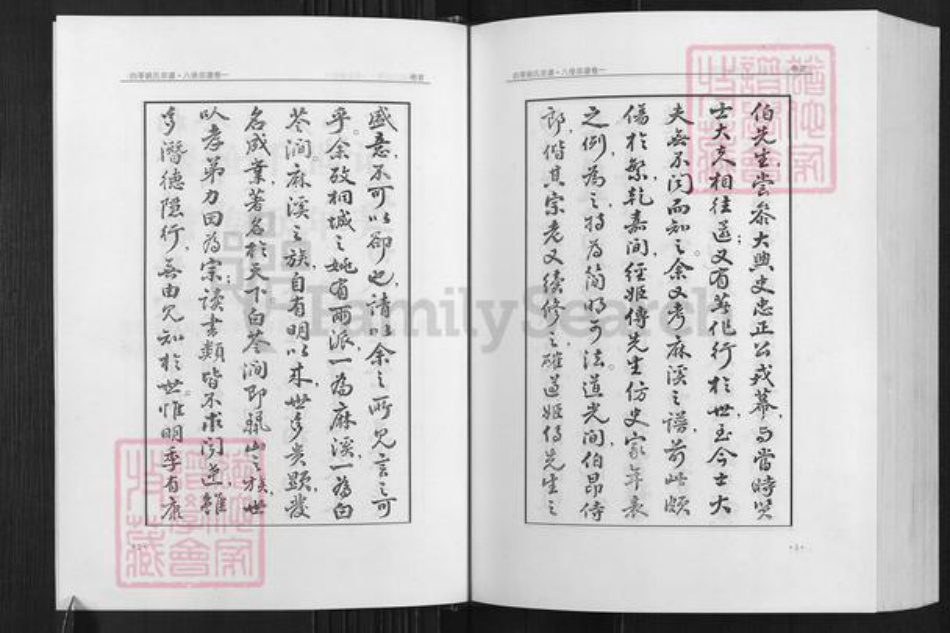 盛意不可以卻也請以余之所見言之可
乎余考桐城之姚有兩派一為麻溪一為白
苓澗麻溪之族自有明以來世多貴顯發
名成業著名於天下白苓澗即龍山之族世
以孝弟力田為宗讀書類皆不求聞達雖
多潛德隱行無由見知於世惟明季有康
伯先生嘗參大興史忠正公戎幕與當時賢
士大夫相往還又有著作行於世至今士大
夫無不聞而知之余又考麻溪之譜前此頗
傷於繁乾嘉間經姬傳先生仿史家年表
之例為之特為簡明可法道光間伯昂侍
郎偕其宗老又續修之確遵姬傳先生之
卷首
FamilySearch